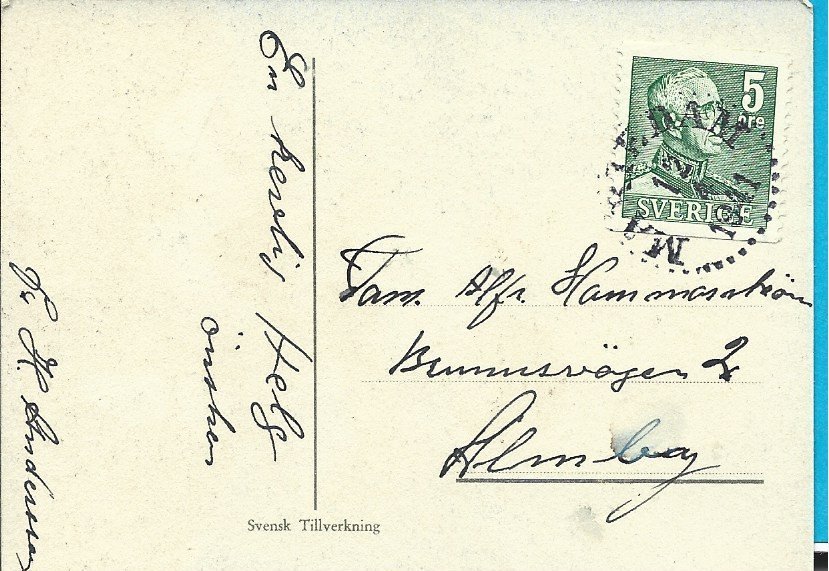 En hevlig Helg
önskar
Fr. H. Andersson
5
öre
SVERIGE
12
4
1941
Fam. Alfr. Hammarström
Brunnsvägen 2
Almby
Svensk Tillverkning